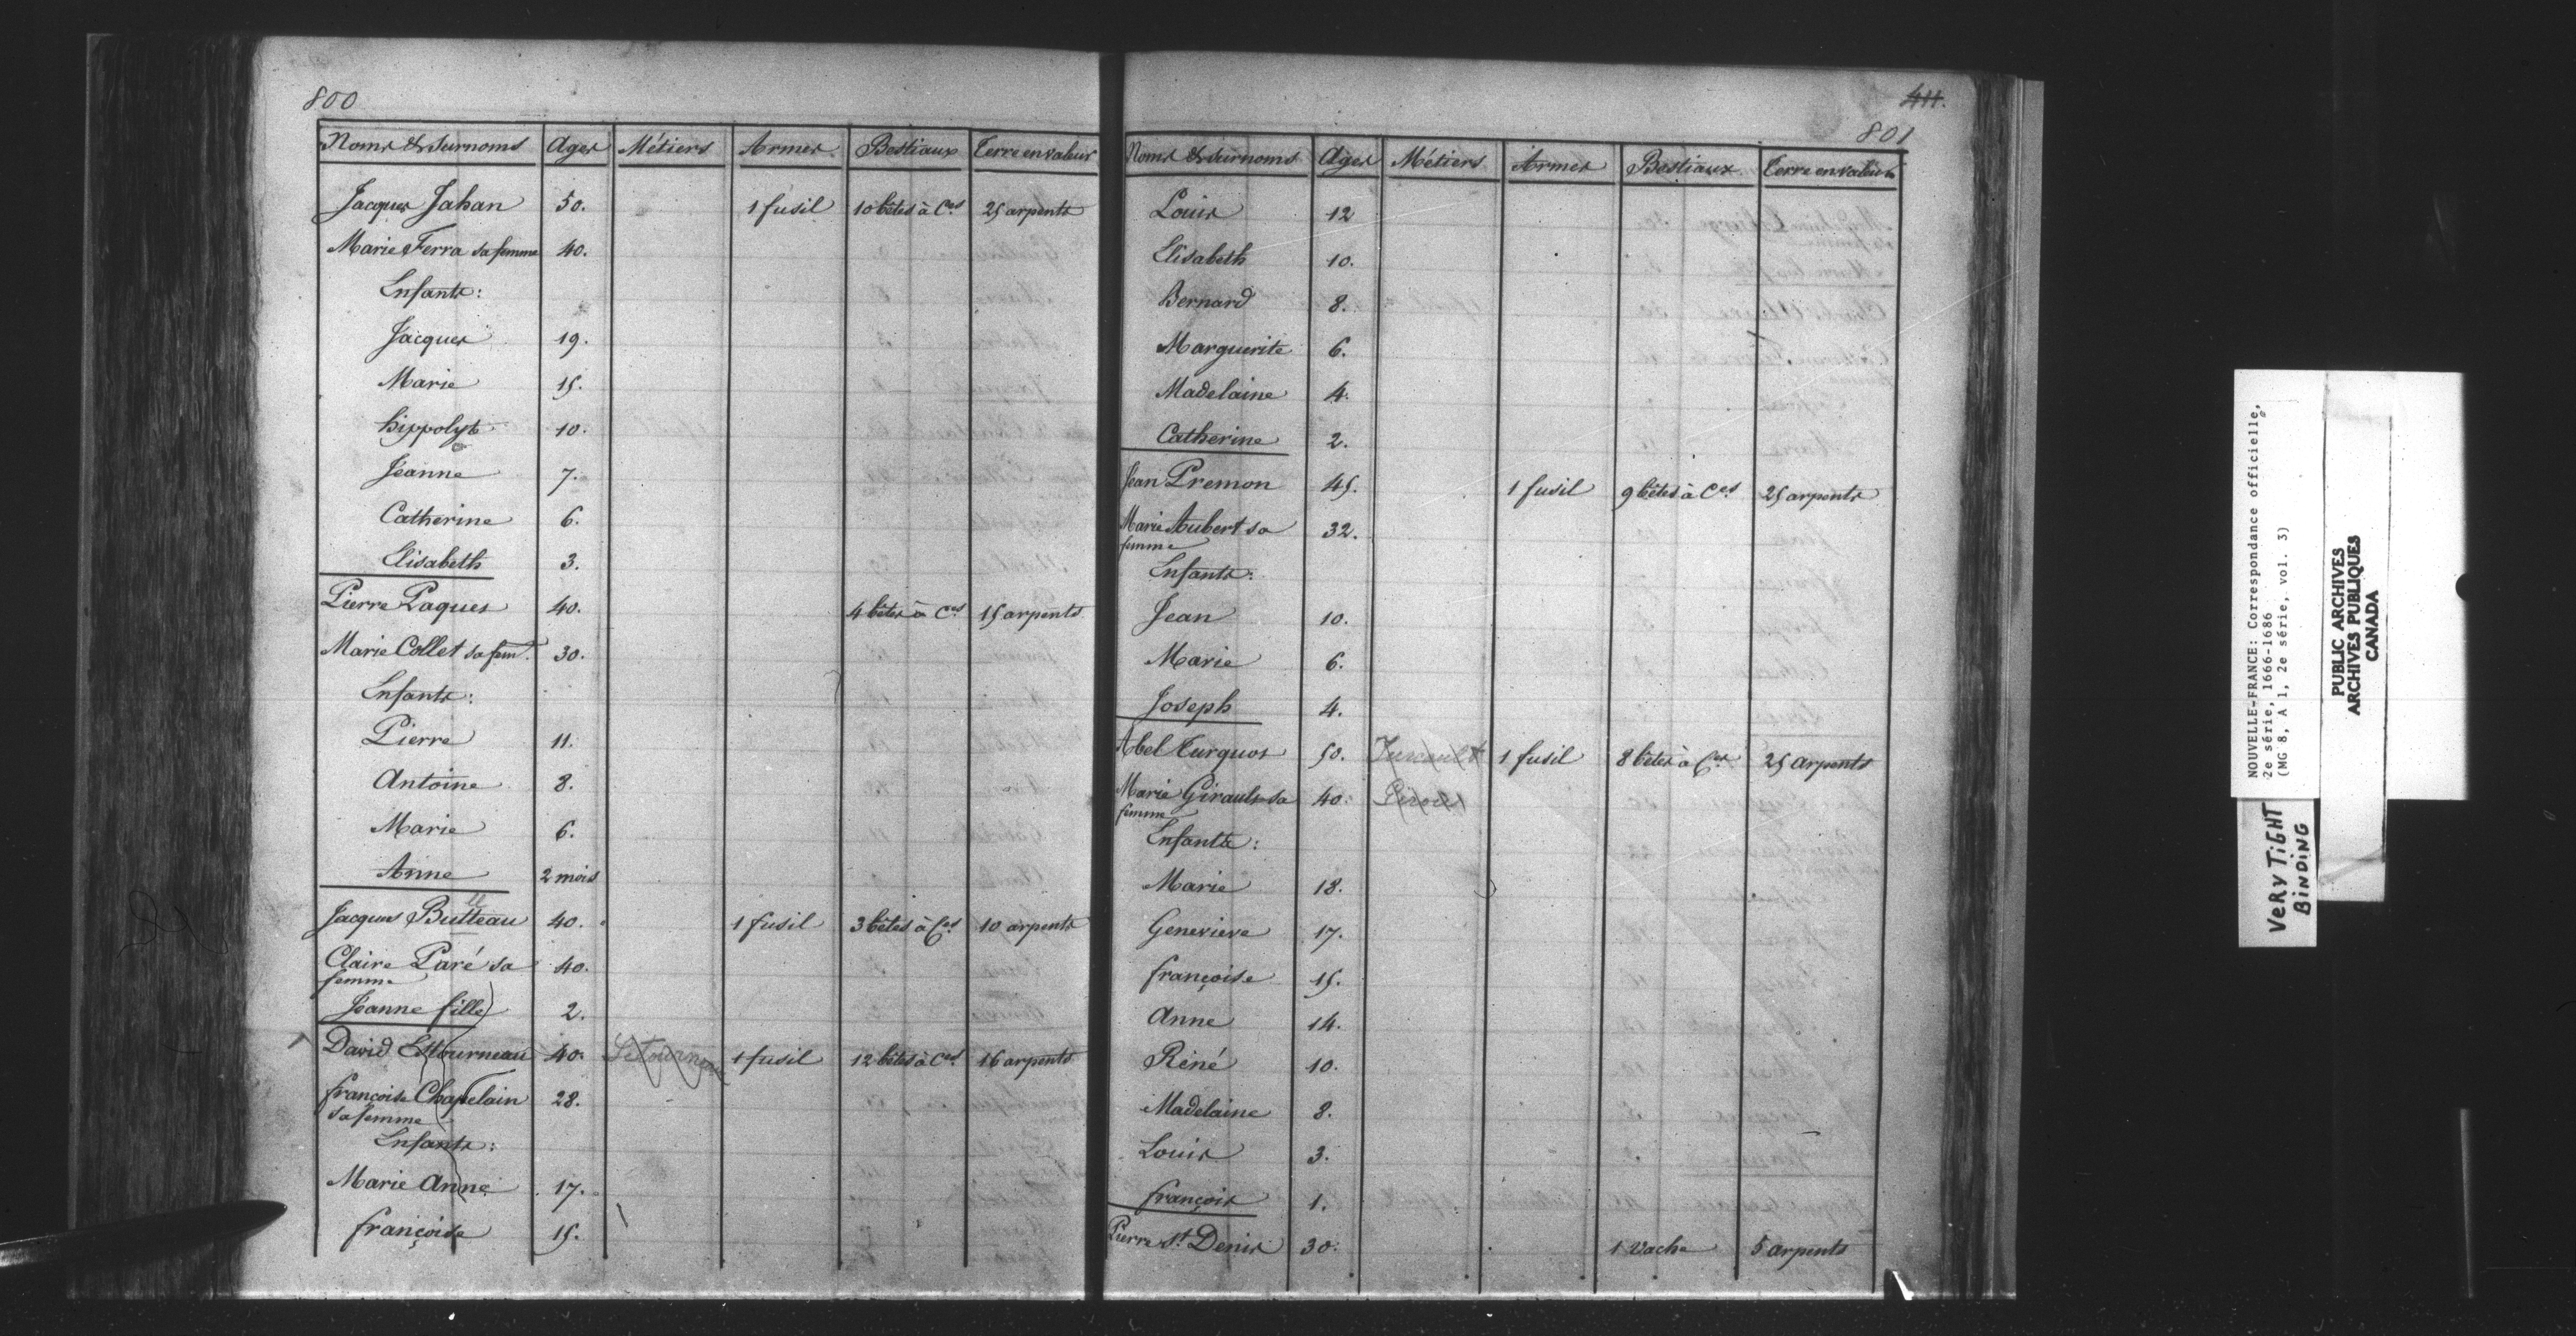 800
Noms & Surnoms Ages Métiers Armes Bestiaux Terre en valeur
Jacques Jahan 50. 1 fusil 10 bêtes à Ces 25 arpents
Marie Ferra sa femme 40.
Enfants:
Jacques 19.
Marie 15.
hippolyte 10.
Jeanne 7.
Catherine 6.
Elisabeth 3.
Pierre Paques 40. 4 bêtes à Ces 15 arpents
Marie Collet sa fem. 30.
Enfants:
Pierre 11.
Antoine 8.
Marie 6.
Anne 2 mois
Jacques Butteau 40. 1 fusil 3 bêtes à Ces 10 arpents
Claire Paré sa 40.
femme
Jeanne fille 2.
David Estourneau 40. Letourneau 1 fusil 12 bêtes à Ces 16 arpents
françoise Chapelain 28.
sa femme
Enfants:
Marie Anne 17.
françoise 15.
411.
801
Noms & Surnoms Ages Métiers Armes Bestiaux Terre en valeur
Louis 12
Elisabeth 10.
Bernard 8.
Marguerite 6.
Madelaine 4.
Catherine 2.
Jean Premon 45. 1 fusil 9 bêtes à Ces 25 arpents
Marie Aubert sa 32.
femme
Enfants:
Jean 10.
Marie 6.
Joseph 4.
Abel Turquos 50. Turcault 1 fusil 8 bêtes à Ces 25 arpents
Marie Girault sa 40.
femme
Enfants:
Marie 18.
Genevieve 17.
françoise 15.
Anne 14.
Réné 10.
Madelaine 8.
Louis 3.
françois 1.
Pierre St. Denis 30. 1 Vache 5 arpents
NOUVELLE-FRANCE: Correspondance officielle,
2e série, 1666-1686
(MG 8, A 1, 2e série, vol. 3)
PUBLIC ARCHIVES
ARCHIVES PUBLIQUES
CANADA
VERY TIGHT
BINDING